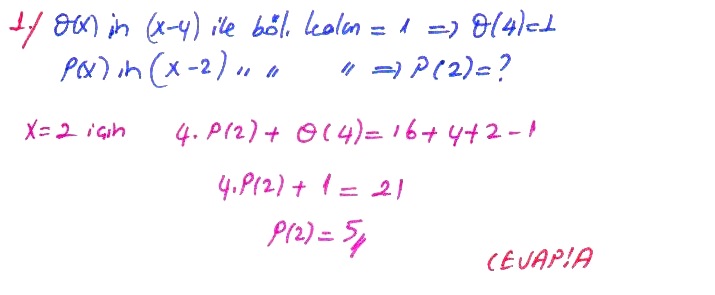 1-/ Q(x) in (x-4) ile böl. kalan = 1 => Q(4)=1
P(x) in (x-2) " " " => P(2)=?
x=2 için 4.P(2) + Q(4) = 16+4+2-1
4.P(2) + 1 = 21
P(2) = 5//
CEVAP:A